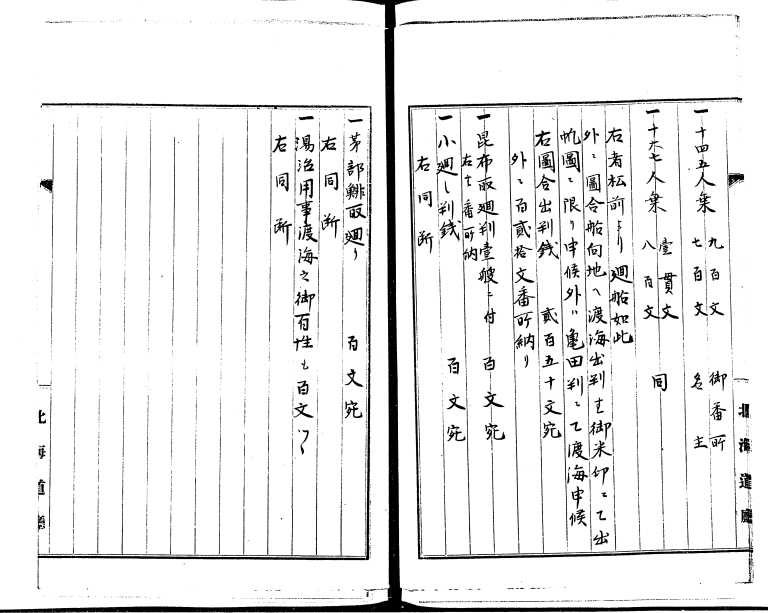 一十四五人乗 九百文 御番所
七百文 名主
一十六七人乗 壹貫文
八百文 同
右者松前ゟ廻船如此
外ニ圖合船向地ヘ渡海出判ハ御米印ニて出
帆圖ニ限リ申候外ハ亀田判ニて渡海申候
右圖合出判銭 貳百五十文宛
外ニ百貳拾文番所納リ
一昆布取廻判壹艘ニ付 百文宛
右ハ番所納
一小廻し判銭 百文宛
右同断
北海道廳
一茅部鯡取廻リ 百文宛
右同断
一湯治用事渡海之御百性も百文ツヽ
右同断
北海道廳